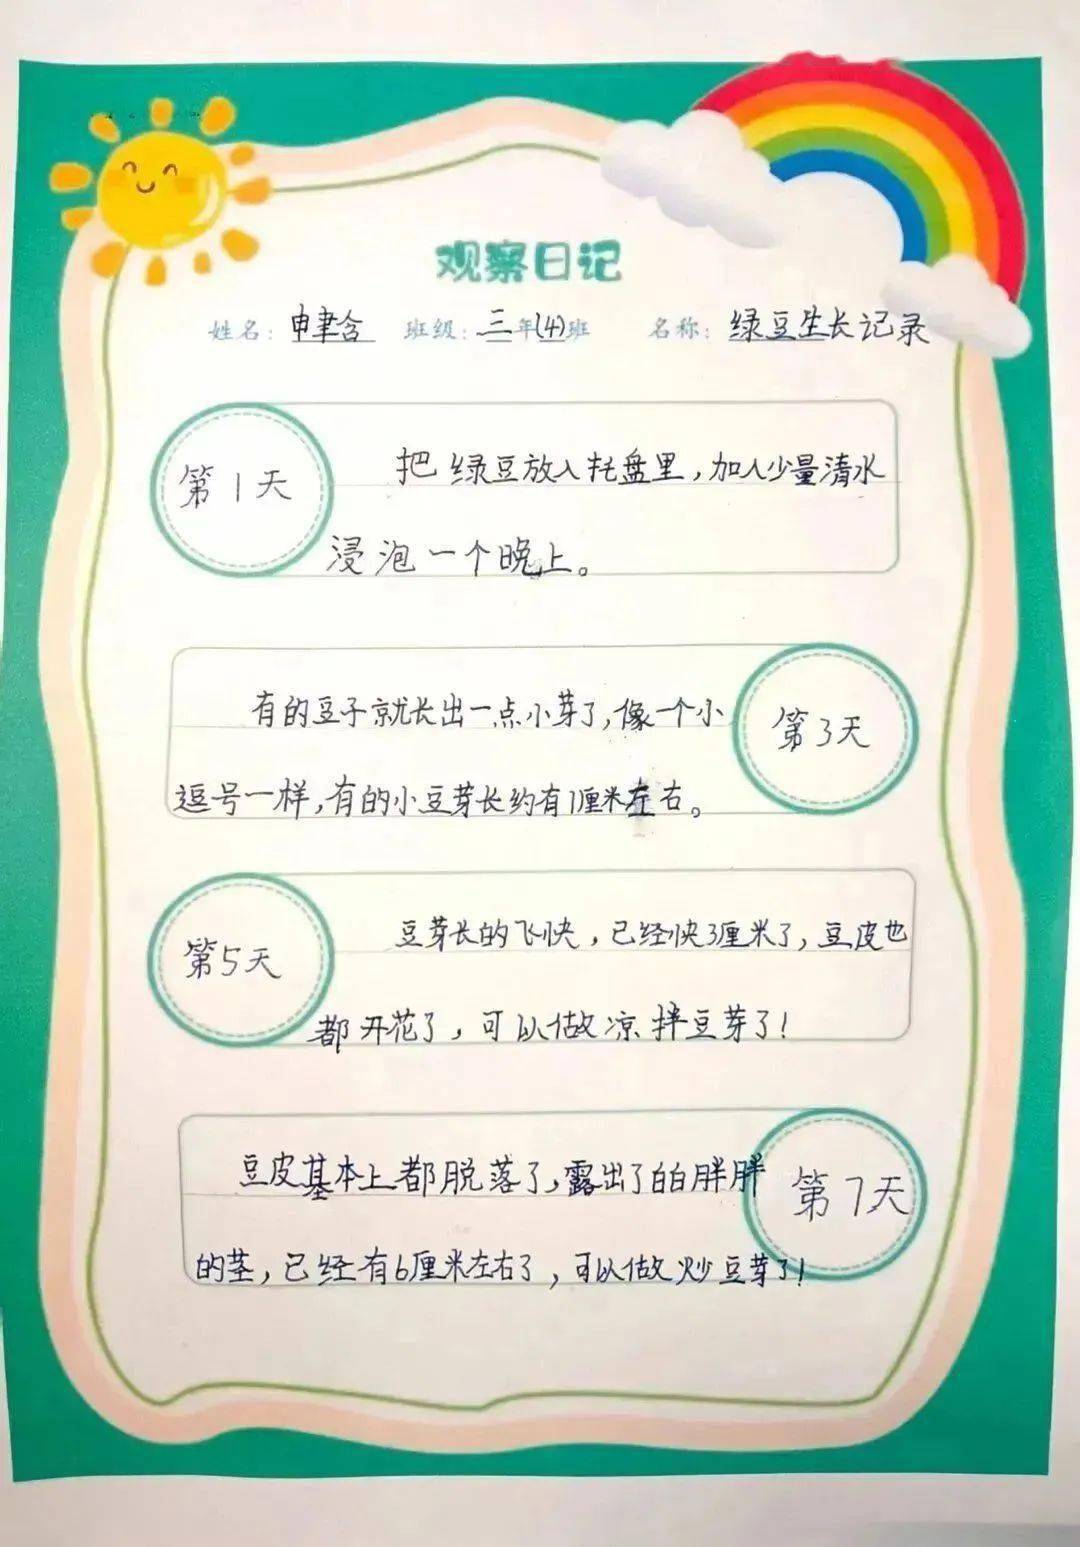 观察日记
姓名：申聿含 班级：三年(4)班 名称：绿豆生长记录
第1天
把绿豆放入托盘里，加入少量清水
浸泡一个晚上。
第3天
有的豆子就长出一点小芽了，像一个小
逗号一样，有的小豆芽长约有1厘米左右。
第5天
豆芽长的飞快，已经快3厘米了，豆皮也
都开花了，可以做凉拌豆芽了！
第7天
豆皮基本上都脱落了，露出了白白胖胖
的茎，已经有6厘米左右了，可以做炒豆芽了！